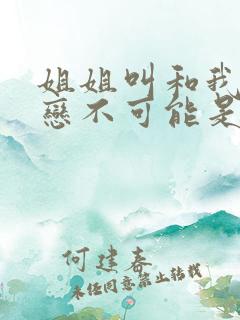 姐姐叫和我
戀不可能是
何建春
未经同意禁止转载